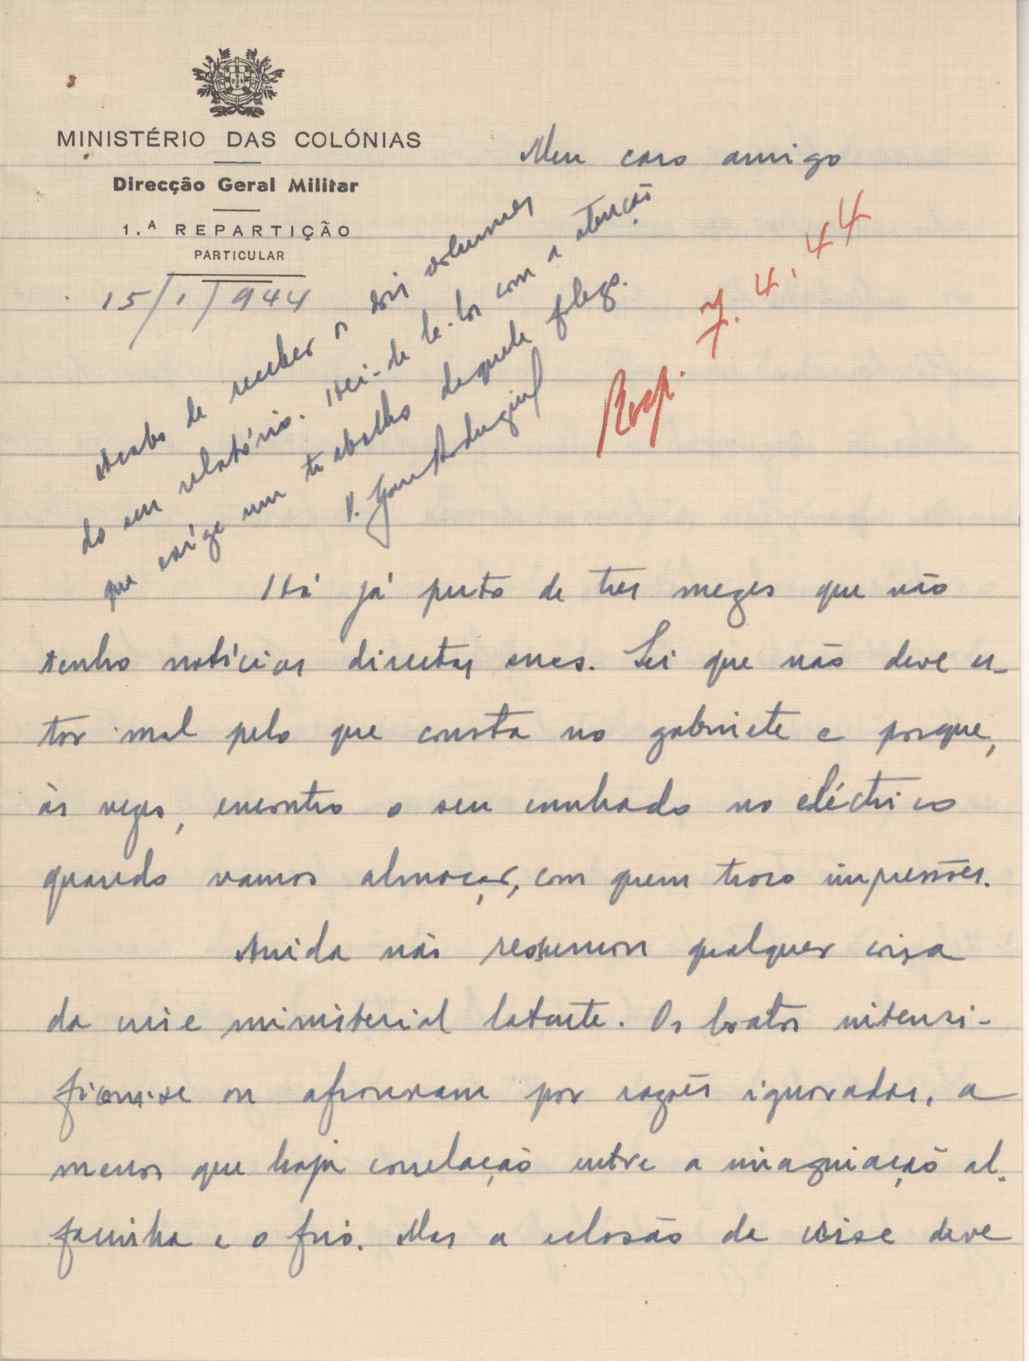 MINISTÉRIO DAS COLÓNIAS
Direcção Geral Militar
1.ª REPARTIÇÃO
PARTICULAR
15/1/944
Meu caro amigo
Acabo de receber os dois volumes
do seu relatório. Hei-de lê-los com a atenção
que exige um trabalho daquele fôlego.
Resp. 7.4.44
Há já perto de tres mezes que não
tenho notícias directas suas. Sei que não deve es-
tar mal pelo que consta no gabinete e porque,
às vezes, encontro o seu cunhado no eléctrico
quando vamos almoçar, com quem troco impressões.
Ainda não resolvemos qualquer coisa
da crise ministerial latente. Os boatos intensi-
ficam-se ou afrouxam por razões ignoradas, a
menos que haja correlação entre a imaginação al-
facinha e o frio. Mas a eclosão da crise deve